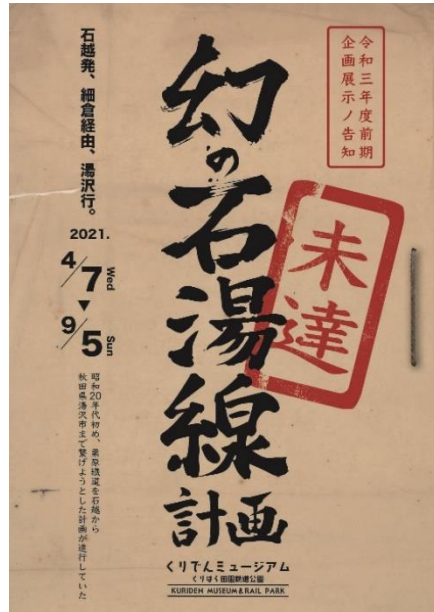 令和三年度前期
企画展示ノ告知
未達
幻の石湯線計画
石越発、細倉経由、湯沢行。
2021.
4/7 Wed
▼
9/5 Sun
昭和20年代初め、栗原鉄道を石越から
秋田県湯沢市まで繋げようとした計画が進行していた
くりでんミュージアム
くりはら田園鉄道公園
KURIDEN MUSEUM & RAIL PARK